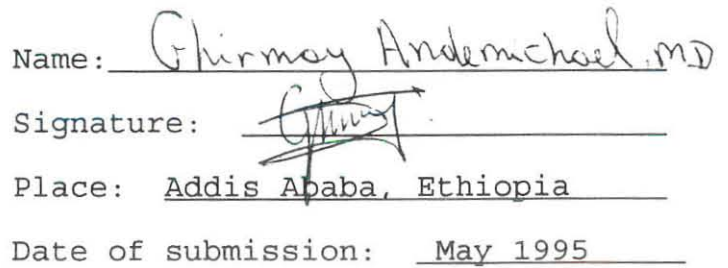 Name: Ghirmay Andemichael, MD
Signature:
Place: Addis Ababa, Ethiopia
Date of submission: May 1995